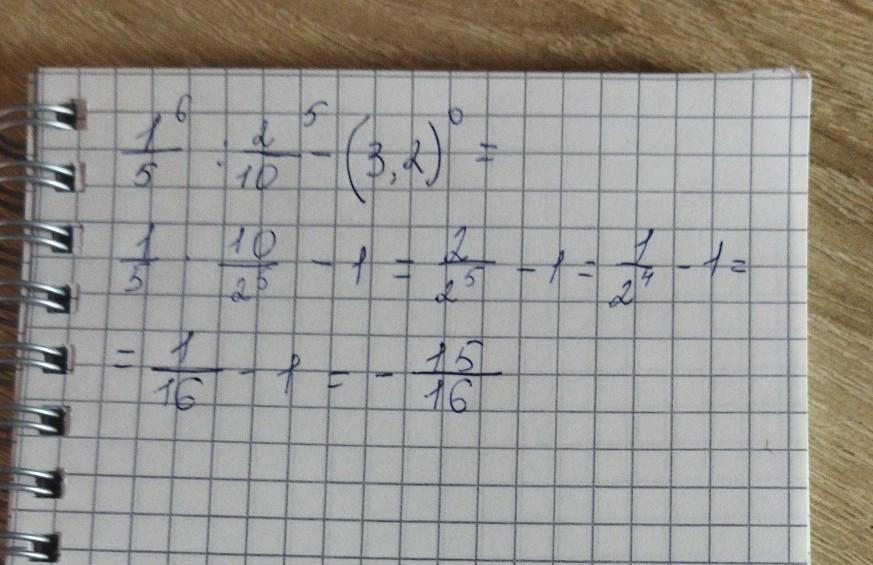 1⁶/5 : 2⁵/10 - (3,2)⁰ =
1/5 · 10/2⁵ - 1 = 2/2⁵ - 1 = 1/2⁴ - 1 =
= 1/16 - 1 = - 15/16